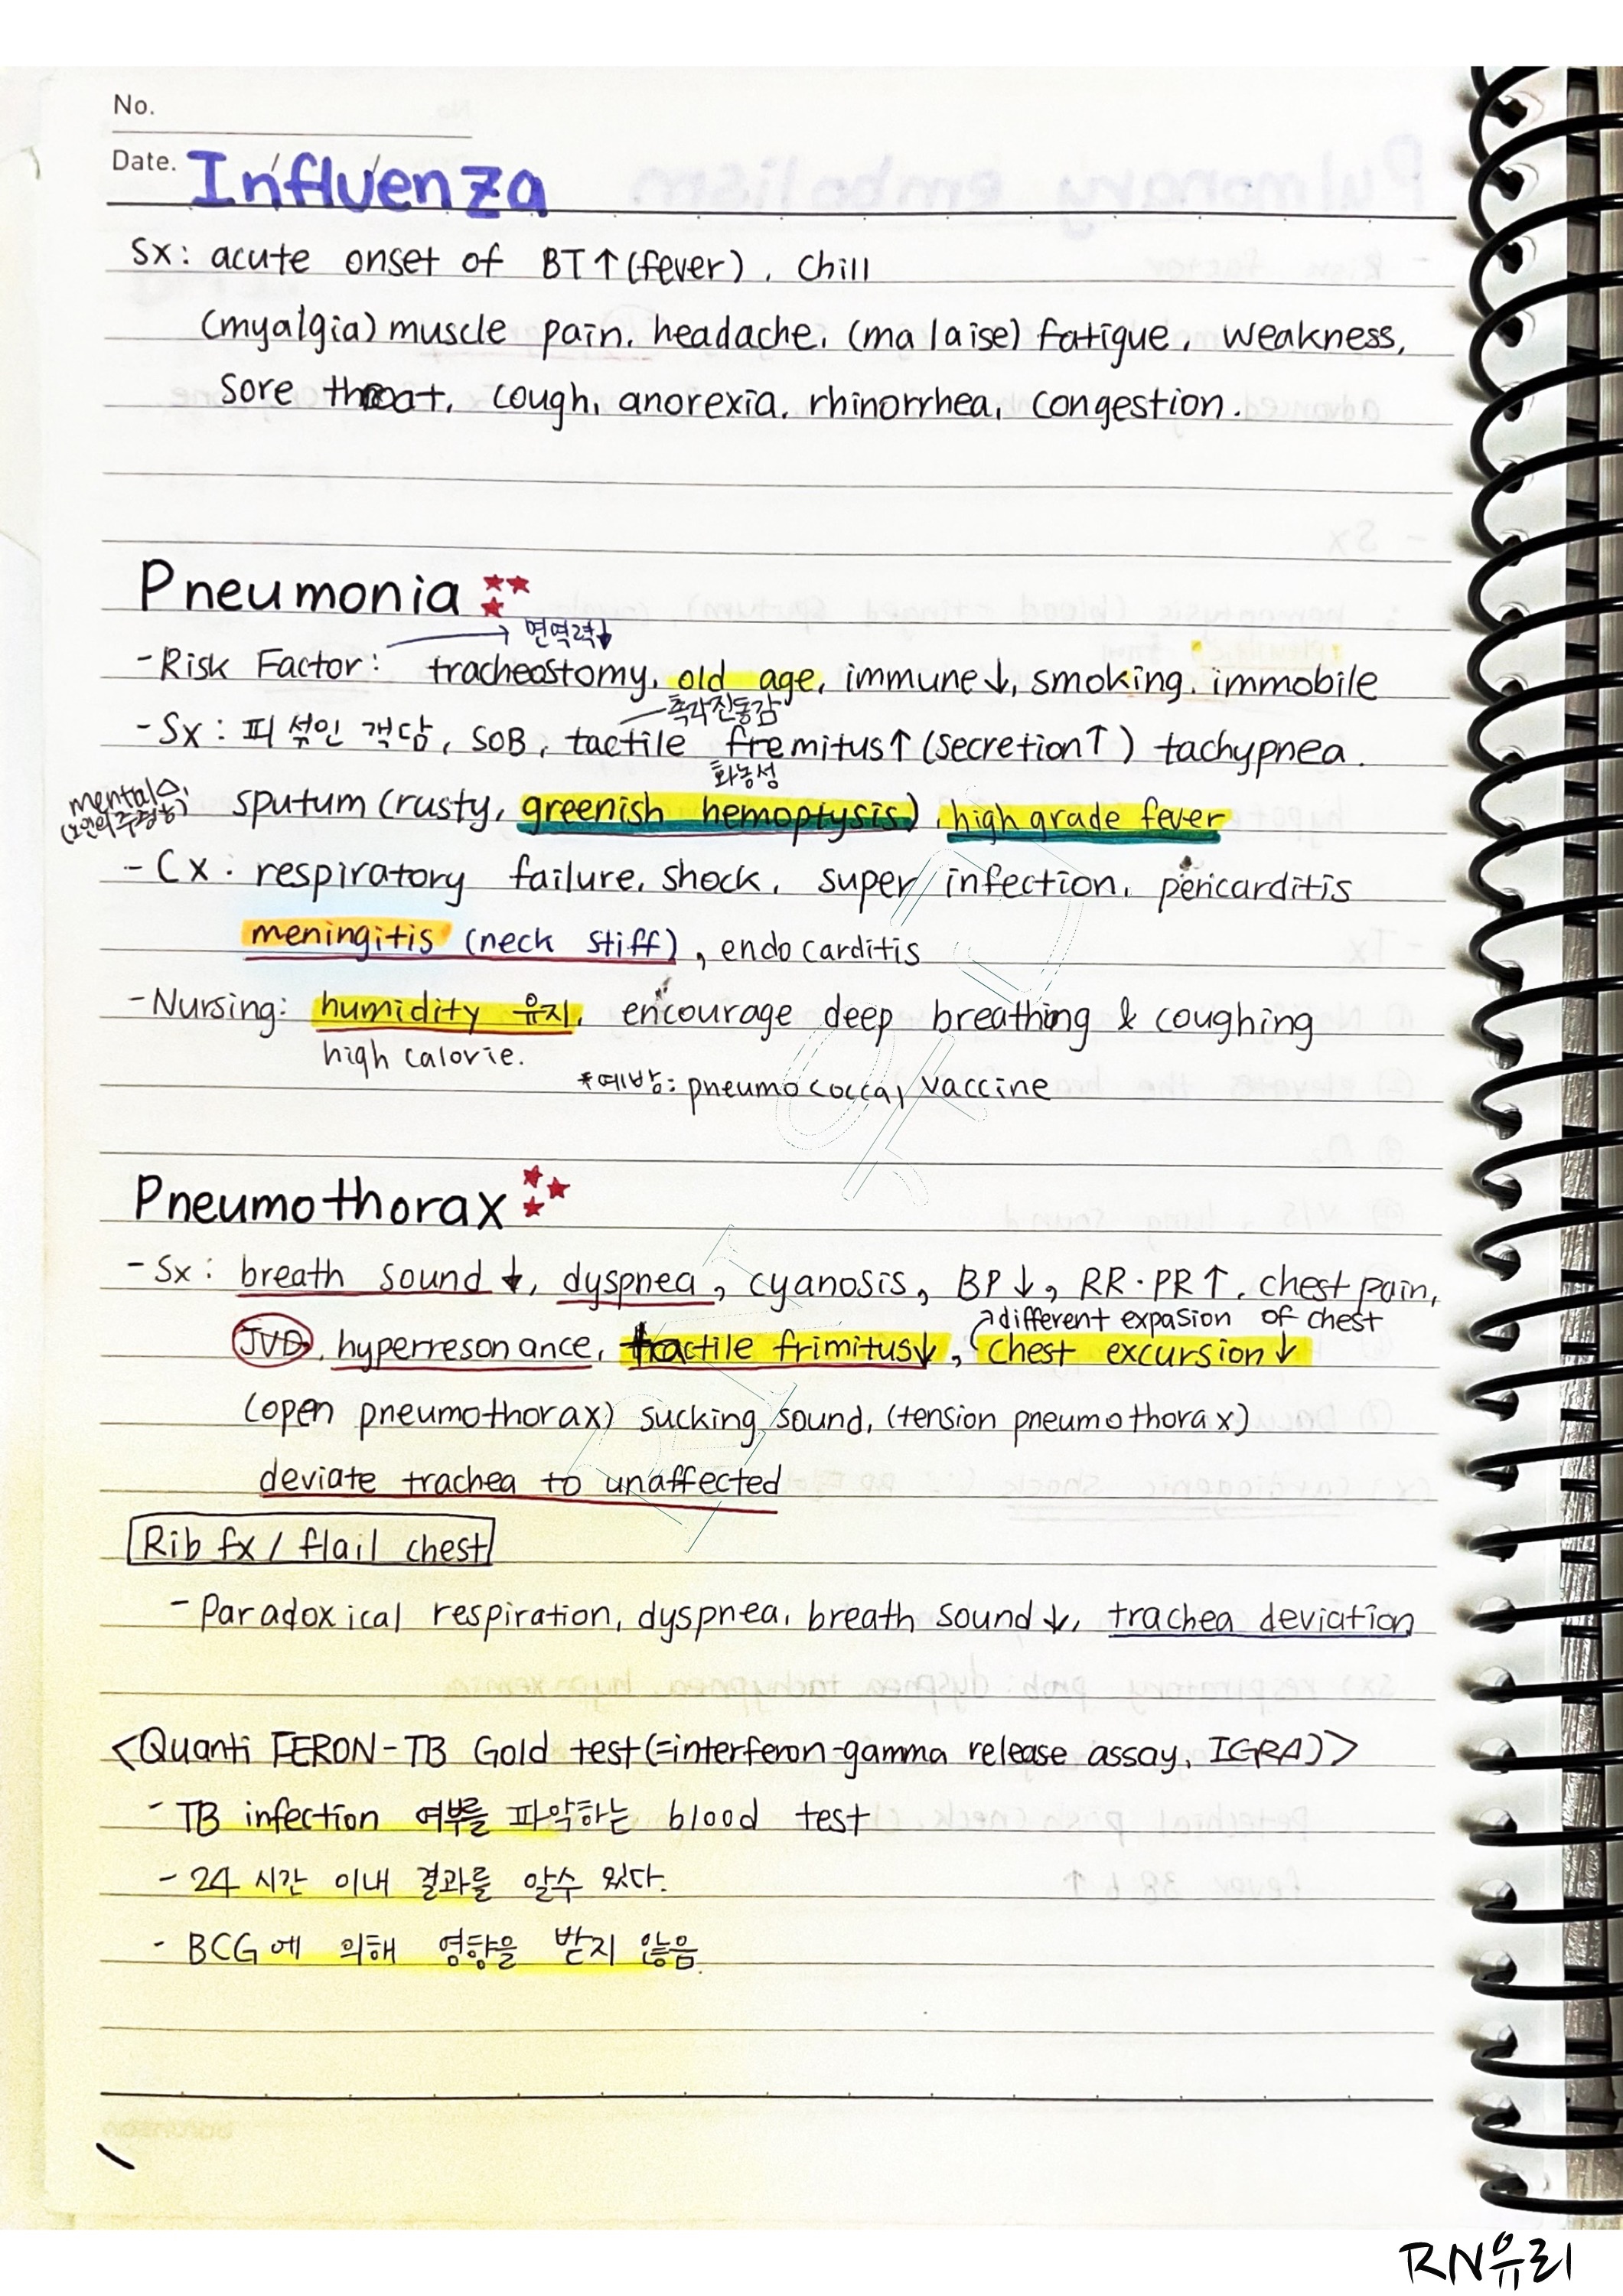 No.
Date. Influenza
Sx: acute onset of BT↑(fever), chill
(myalgia) muscle pain, headache, (malaise) fatigue, weakness,
sore throat, cough, anorexia, rhinorrhea, congestion.
Pneumonia ★★★
→ 면역력↓
-Risk Factor: tracheostomy, old age, immune↓, smoking, immobile
촉각진동감
-Sx: 피 섞인 객담, SOB, tactile fremitus↑(secretion↑) tachypnea.
화농성
mental△,
(노인의 주증상)
sputum (rusty, greenish hemoptysis), high grade fever
-Cx: respiratory failure, shock, super infection, pericarditis
meningitis (neck stiff), endocarditis
-Nursing: humidity 유지, encourage deep breathing & coughing
high calorie.
*예방: pneumococcal vaccine
Pneumothorax ★★★
-Sx: breath sound ↓, dyspnea, cyanosis, BP↓, RR·PR↑, chest pain,
↗different expasion of chest
JVD, hyperresonance, tractile frimitus↓, chest excursion↓
(open pneumothorax) sucking sound, (tension pneumothorax)
deviate trachea to unaffected
Rib fx / flail chest
-Paradoxical respiration, dyspnea, breath sound↓, trachea deviation
<Quanti FERON-TB Gold test(=interferon-gamma release assay, IGRA)>
- TB infection 여부를 파악하는 blood test
- 24시간 이내 결과를 알수 있다.
- BCG에 의해 영향을 받지 않음.
RN유리